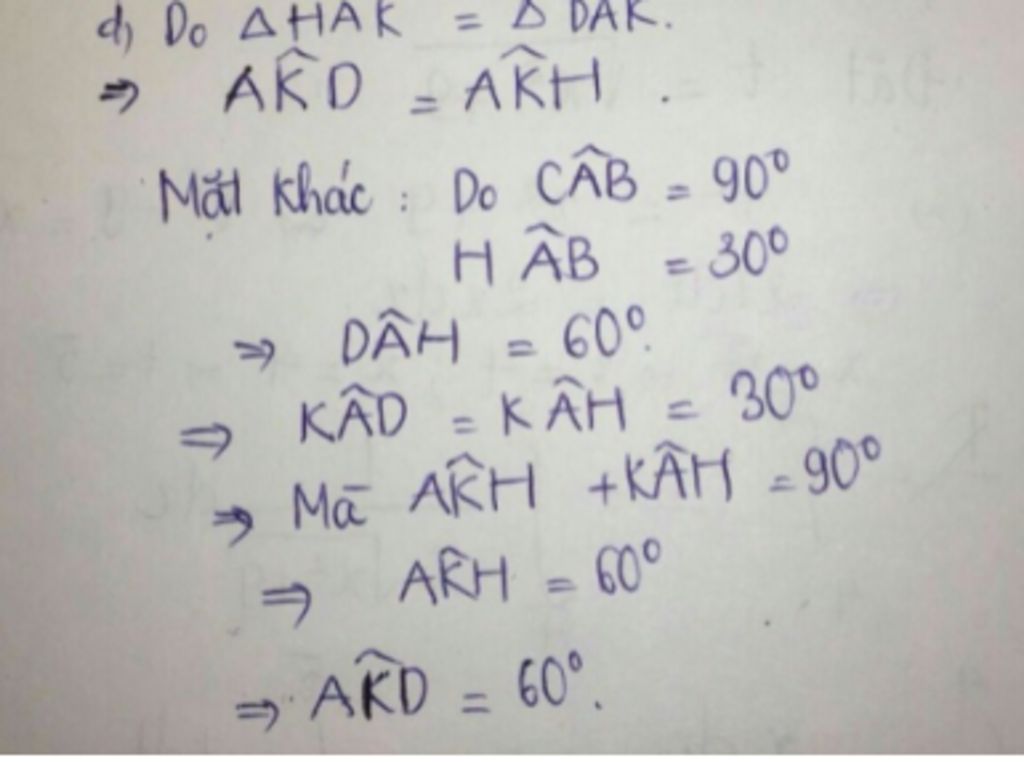 d) Do △HAK = △DAK.
⇒ AK̂D = AK̂H .
Mặt khác : Do CÂB = 90⁰
HÂB = 30⁰
⇒ DÂH = 60⁰.
⇒ KÂD = KÂH = 30⁰
⇒ Mà AK̂H + KÂH = 90⁰
⇒ AK̂H = 60⁰
⇒ AK̂D = 60⁰.